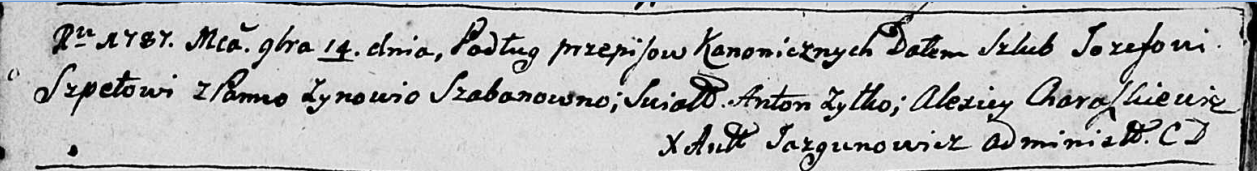 Ru 1787. Mca. 9bra 14. dnia, Podług przepisow Kanonicznych Dałem Szlub Jozefowi
Szpetowi z Panno Zynowio Szabanowno; Swiadk. Anton Zytko; Alexiey Charaszkiewicz
X Ant Jazgunowicz administr. CD